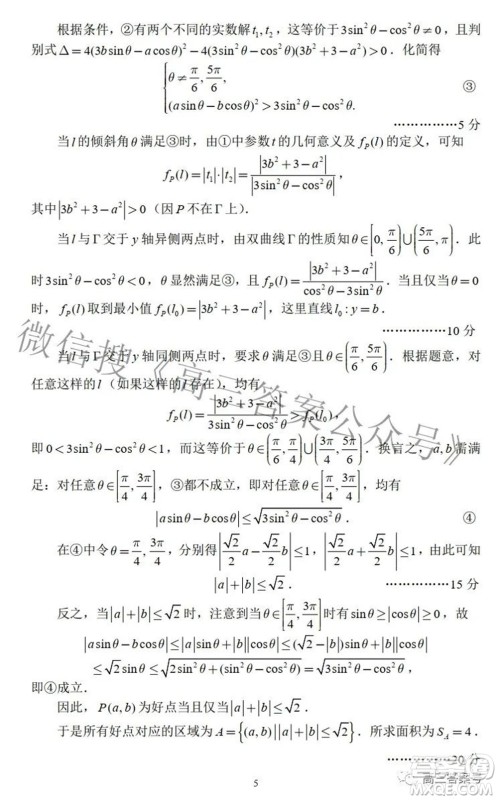 根据条件，②有两个不同的实数解 t₁, t₂，这等价于 3sin²θ−cos²θ≠0，且判
别式 Δ=4(3bsinθ−acosθ)²−4(3sin²θ−cos²θ)(3b²+3−a²)>0．化简得
{θ≠π/6, 5π/6,
(asinθ−bcosθ)²>3sin²θ−cos²θ. ③
……………5 分
当 l 的倾斜角 θ 满足③时，由①中参数 t 的几何意义及 f_P(l) 的定义，可知
f_P(l)=|t₁|·|t₂|=|3b²+3−a²|/|3sin²θ−cos²θ|，
其中 |3b²+3−a²|>0（因 P 不在 Γ 上）．
当 l 与 Γ 交于 y 轴异侧两点时，由双曲线 Γ 的性质知 θ∈[0, π/6)∪(5π/6, π)．此
时 3sin²θ−cos²θ<0，θ 显然满足③，且 f_P(l)=|3b²+3−a²|/(cos²θ−3sin²θ)．当且仅当 θ=0
时，f_P(l) 取到最小值 f_P(l₀)=|3b²+3−a²|，这里直线 l₀: y=b．
……………10 分
当 l 与 Γ 交于 y 轴同侧两点时，要求 θ 满足③且 θ∈(π/6, 5π/6)．根据题意，对
任意这样的 l（如果这样的 l 存在），均有
f_P(l)=|3b²+3−a²|/(3sin²θ−cos²θ)>f_P(l₀)，
即 0<3sin²θ−cos²θ<1，而这等价于 θ∈(π/6, π/4)∪(3π/4, 5π/6)．换言之，a, b 需满
足：对任意 θ∈[π/4, 3π/4]，③都不成立，即对任意 θ∈[π/4, 3π/4]，均有
|asinθ−bcosθ|≤√(3sin²θ−cos²θ)． ④
在④中令 θ=π/4, 3π/4，分别得 |√2/2 a−√2/2 b|≤1，|√2/2 a+√2/2 b|≤1，由此可知
|a|+|b|≤√2． ……………15 分
反之，当 |a|+|b|≤√2 时，注意到当 θ∈[π/4, 3π/4] 时有 sinθ≥|cosθ|≥0，故
|asinθ−bcosθ|≤|a|sinθ+|b||cosθ|≤(√2−|b|)sinθ+|b||cosθ|
≤√2sinθ≤√(2sin²θ+(sin²θ−cos²θ))=√(3sin²θ−cos²θ)，
即④成立．
因此，P(a, b) 为好点当且仅当 |a|+|b|≤√2．
于是所有好点对应的区域为 A={(a, b)||a|+|b|≤√2}．所求面积为 S_A=4．
……………20 分
5
微信搜《高三答案公众号》
高三答案号
MXQE.COM